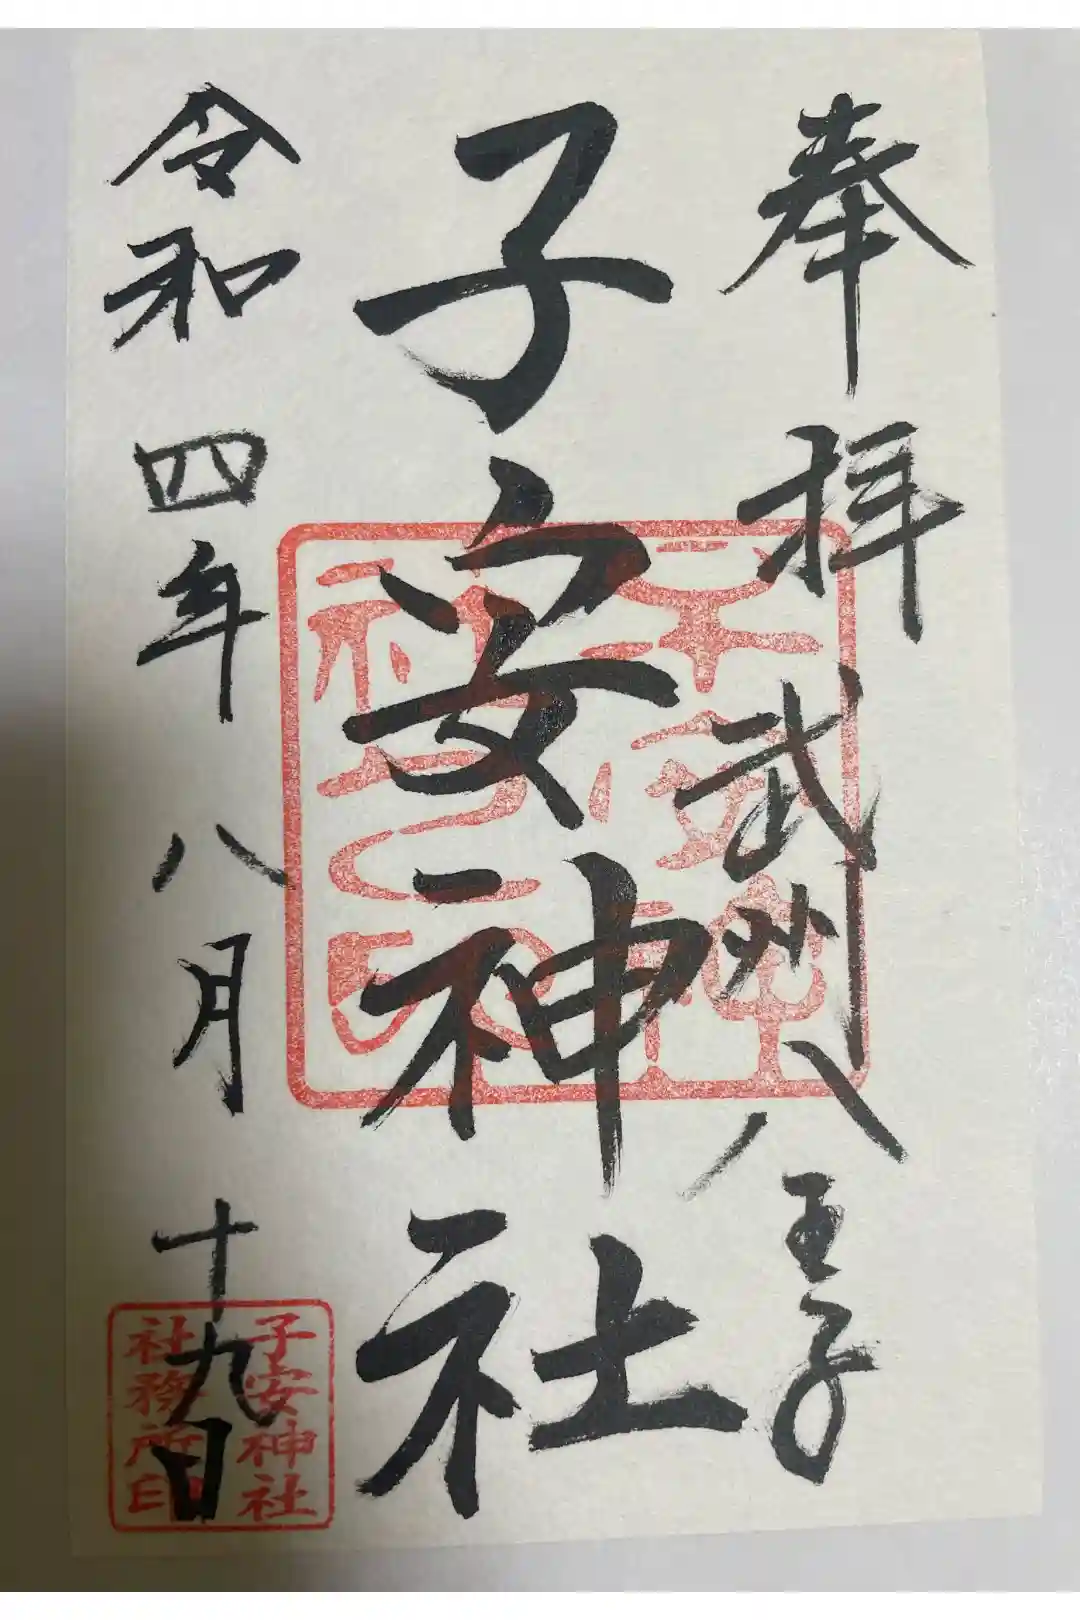 奉拝 武州八王子
子安神社
令和四年八月十九日
子安神社
社務所印